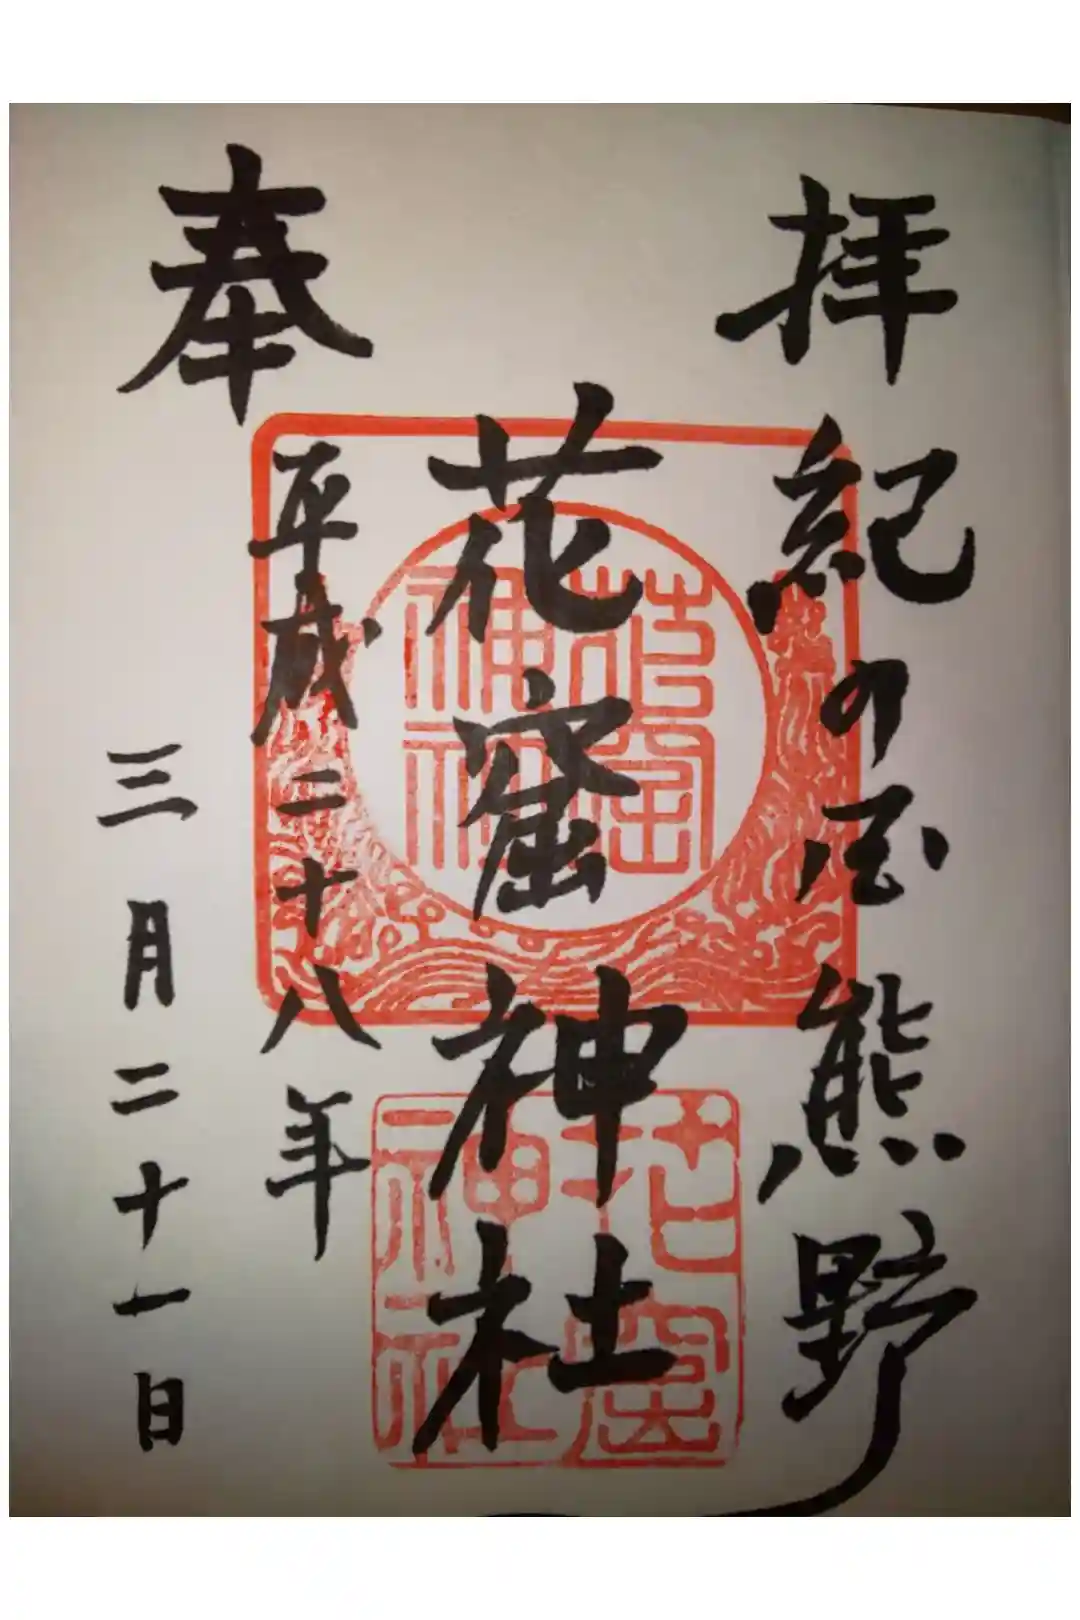 奉拝
紀の国熊野
花窟神社
平成二十八年
三月二十一日
花窟神社
花窟神社